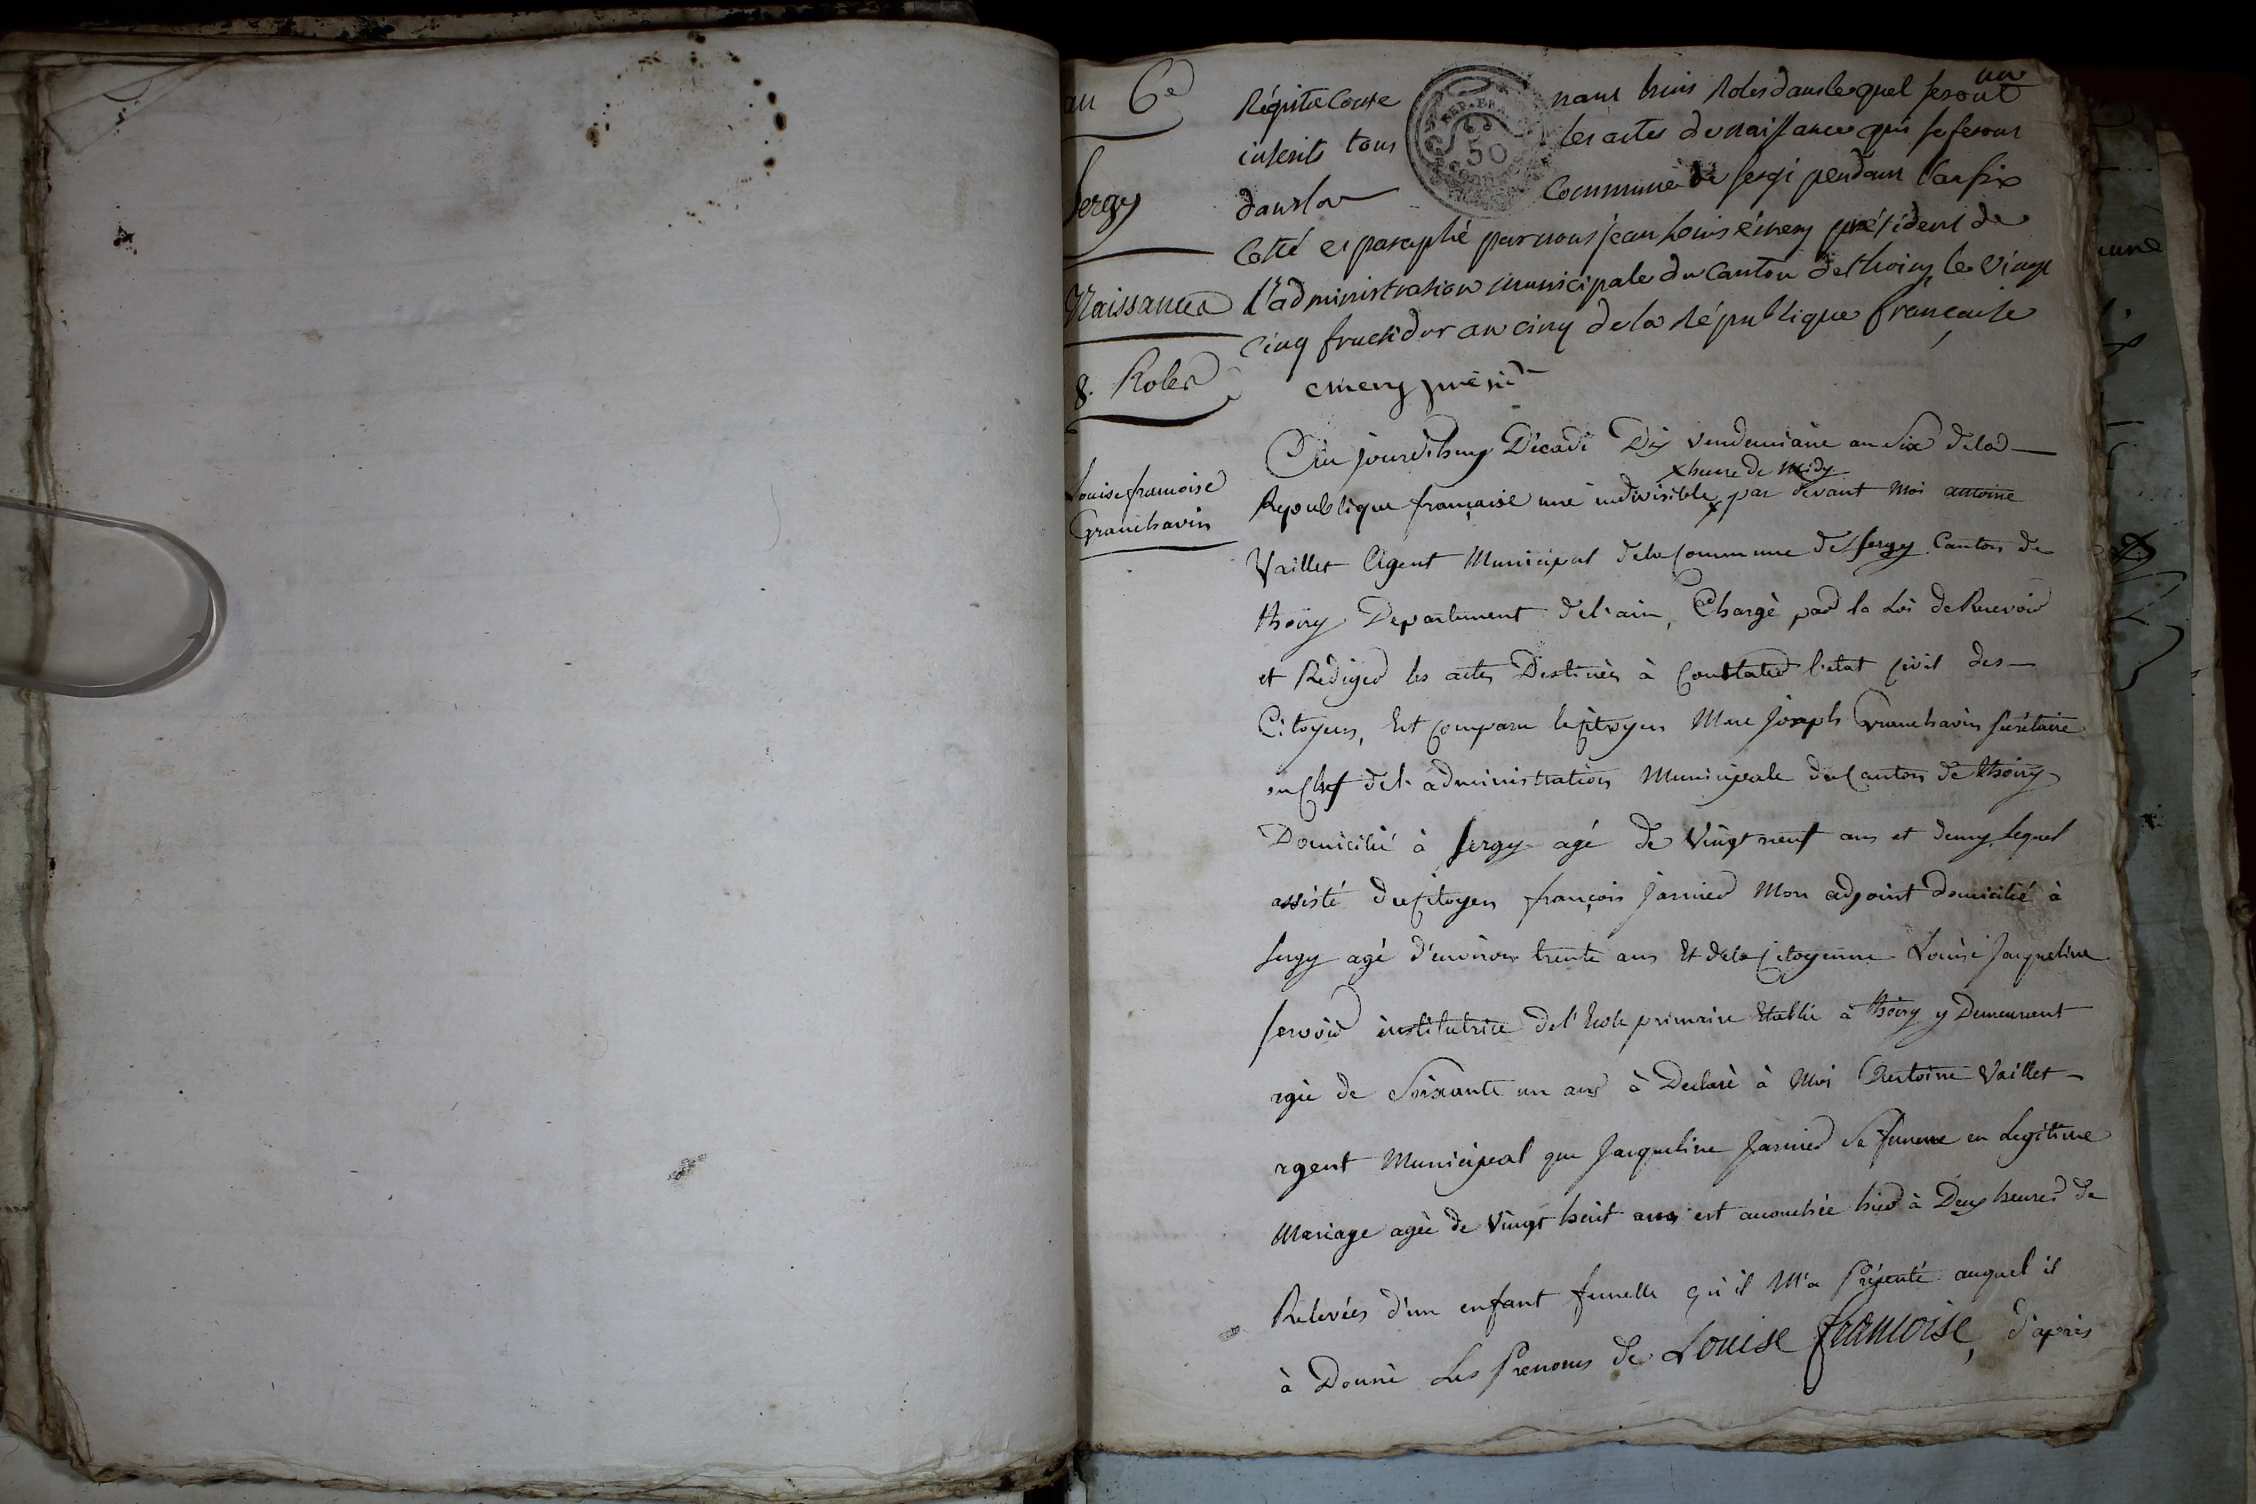 an 6e
Sergy
Naissances
8. Roles
Louise francoise
Granchavin
Régistre Conte nant huit Roles dans lequel seront
inscrits tous les actes de naissance qui se feront
dans la Commune de sergi pendant l'an six
Cotté et paraphé par nous jean Louis émery président de
l'administration municipale du Canton de thoiry le vingt
cinq fructidor an cinq de la République française
emery présidt
Au jourdhuy Décadi Dix vendemiaire an Six de la
xheure de Midy
Republique française une indivisible x par devant Moi antoine
Vaillet Agent Municipal de la Commune de Sergy Canton de
thoiry Departement de l'ain, Chargé par la Loi de Recevoir
et Rédiger les actes Destinés à Constater l'etat Civil des
Citoyens, Est Comparu le Citoyen Marc Joseph Granchavin Sécrétaire
en Chef de l'administration Municipale du Canton de thoiry
Domicilié à Sergy agé de Vingt neuf ans et demy, lequel
assisté du Citoyen françois Janier Mon adjoint domicilié à
Sergy agé d'environ trente ans Et de la Citoyenne Louise Jaqueline
institutrice de l'Ecole primaire Etablie à thoiry y Demeurant
agée de Soixante un ans à Declaré à Moi Antoine Vaillet
agent Municipal que Jaqueline Janier Sa femme en Legitime
Mariage agée de Vingt huit ans est accouchée hier à Deux heures de
Relevées d'un enfant femelle qu'il M'a Présenté auquel il
à Donné Les Prenoms de Louise francoise, d'après